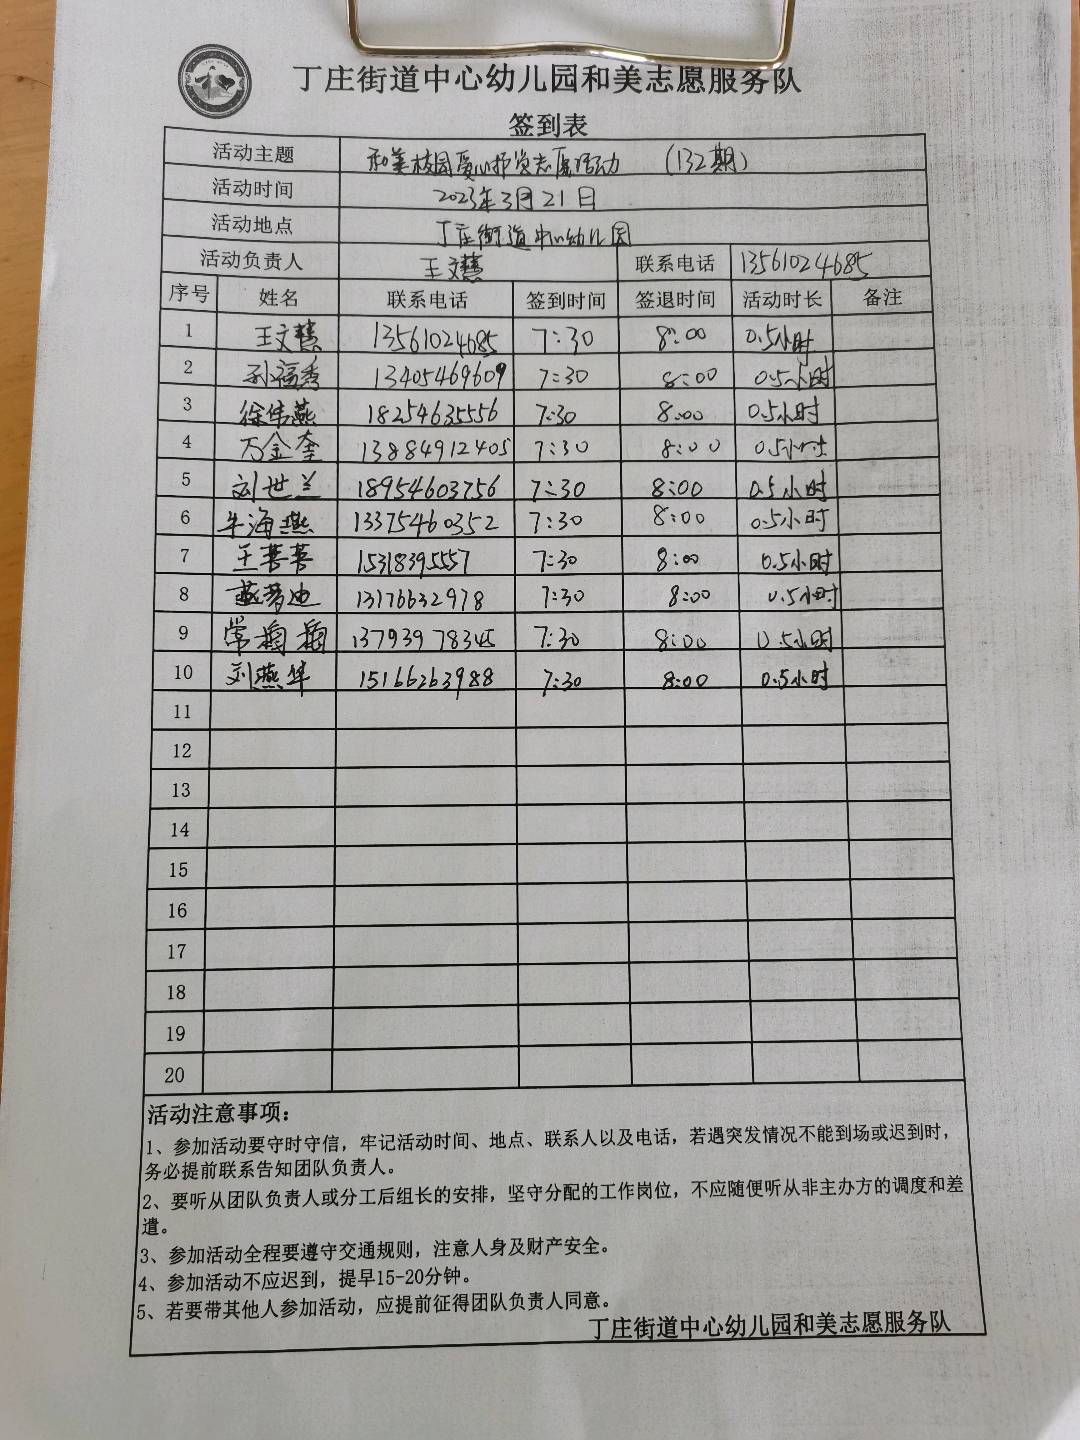 丁庄街道中心幼儿园和美志愿服务队
签到表
活动主题 和美校园爱心护学志愿活动 (132期)
活动时间 2023年3月21日
活动地点 丁庄街道中心幼儿园
活动负责人 王文慧 联系电话 13561024685
序号 姓名 联系电话 签到时间 签退时间 活动时长 备注
1 王文慧 13561024685 7:30 8:00 0.5小时
2 孙福秀 13405469609 7:30 8:00 0.5小时
3 徐伟燕 18254635556 7:30 8:00 0.5小时
4 万金奎 13884912405 7:30 8:00 0.5小时
5 刘世兰 18954603756 7:30 8:00 0.5小时
6 牛海燕 13375460352 7:30 8:00 0.5小时
7 王菩菩 15318395557 7:30 8:00 0.5小时
8 13176632978 7:30 8:00 0.5小时
9 常梅梅 13793978345 7:30 8:00 0.5小时
10 刘燕华 15166263988 7:30 8:00 0.5小时
11
12
13
14
15
16
17
18
19
20
活动注意事项：
1、参加活动要守时守信，牢记活动时间、地点、联系人以及电话，若遇突发情况不能到场或迟到时，
务必提前联系告知团队负责人。
2、要听从团队负责人或分工后组长的安排，坚守分配的工作岗位，不应随便听从非主办方的调度和差
遣。
3、参加活动全程要遵守交通规则，注意人身及财产安全。
4、参加活动不应迟到，提早15-20分钟。
5、若要带其他人参加活动，应提前征得团队负责人同意。
丁庄街道中心幼儿园和美志愿服务队